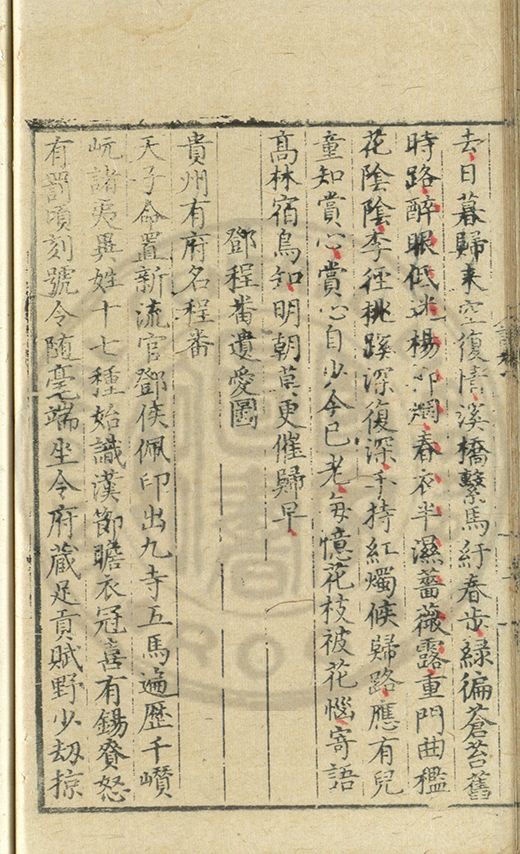 去日暮歸來空復情溪橋繫馬紆春步綠徧蒼苔舊
時路醉眼低迷楊柳烟春衣半濕薔薇露重門曲檻
花陰陰李徑桃蹊深復深手持紅燭候歸路應有兒
童知賞心賞心自少今已老每憶花枝被花惱寄語
高林宿鳥知明朝莫更催歸早
鄧程番遺愛圖
貴州有府名程番
天子命置新流官鄧侯佩印出九寺五馬遍歷千巑
岏諸夷異姓十七種始識漢節瞻衣冠喜有錫賚怒
有罰頃刻號令随毫端坐令府藏足貢賦野少刼掠